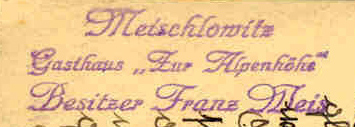 Metschlowitz
Gasthaus „Zur Alpenhöhe“
Besitzer Franz Meis